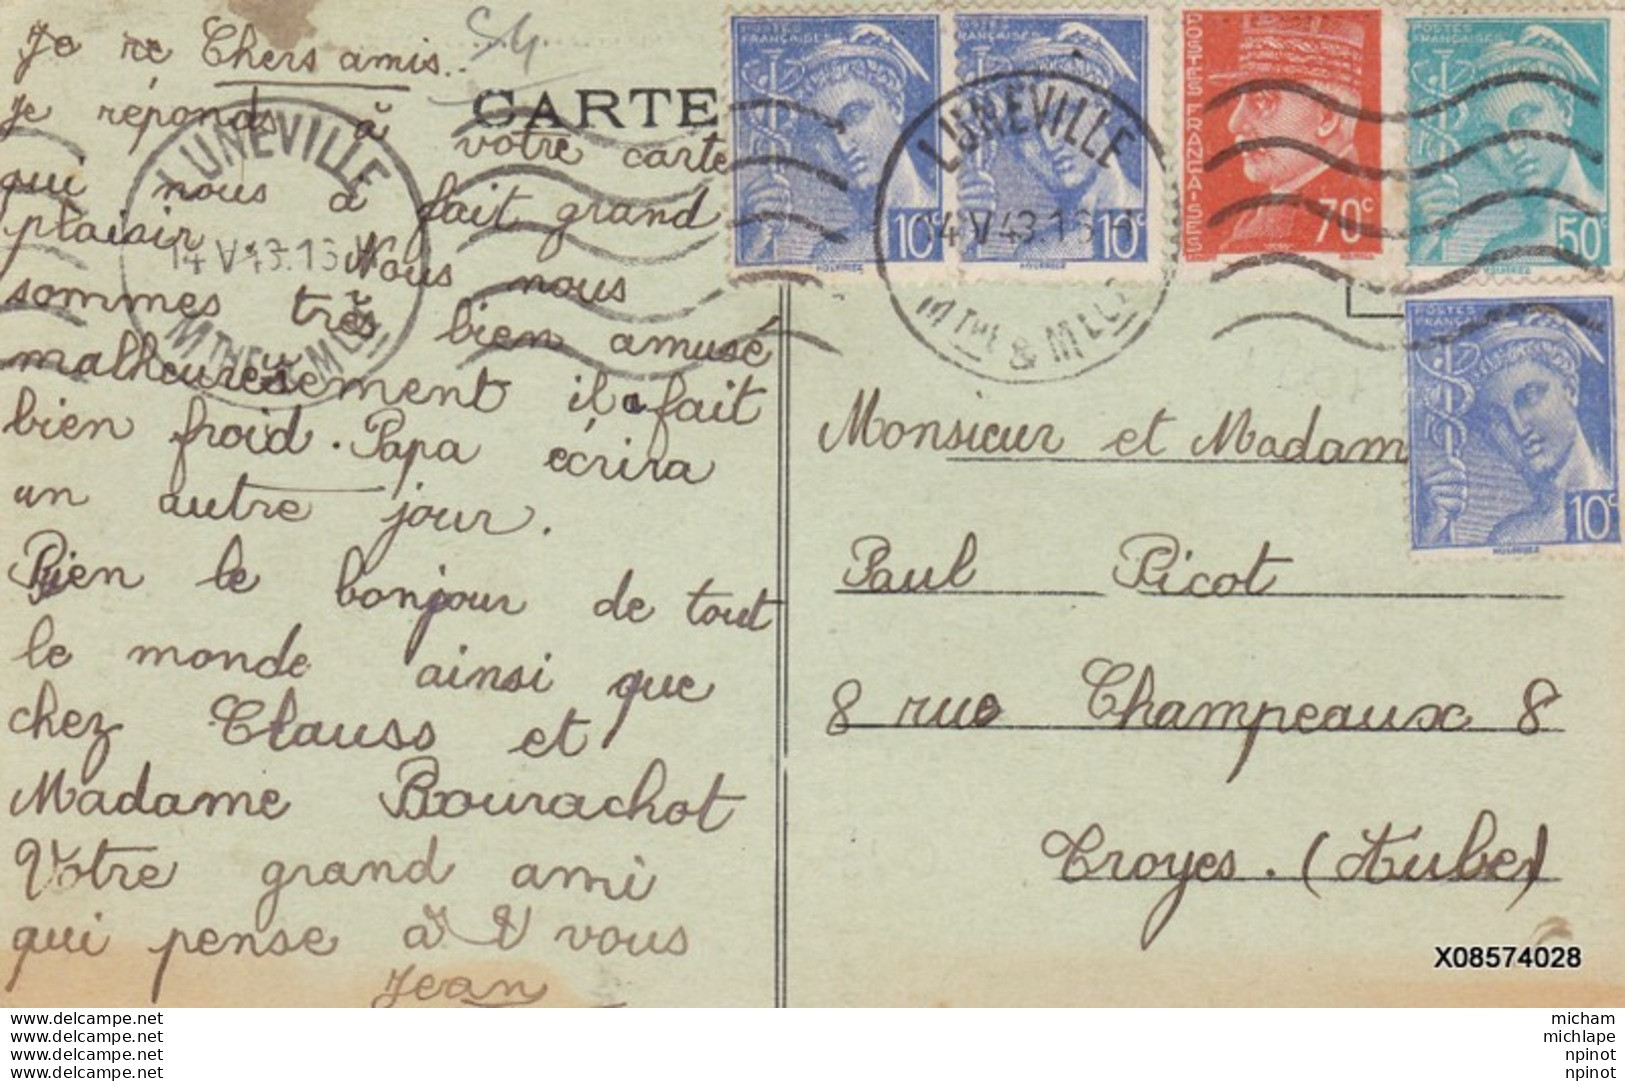 Je re Chers amis..
je réponds à votre carte
qui nous a fait grand
plaisir. Nous nous
sommes très bien amusé
malheuresement il a fait
bien froid. Papa écrira
un autre jour.
Bien le bonjour de tout
le monde ainsi que
chez Clauss et
Madame Bourachot
Votre grand ami
qui pense à vous
Jean
CARTE
LUNEVILLE
14 V 43.15 H
LUNEVILLE
14 V 43.15 H
POSTES
FRANÇAISES
10c
POSTES
FRANÇAISES
10c
POSTES FRANÇAISES
70c
POSTES
FRANÇAISES
50c
POSTES
FRANÇAISES
10c
Monsieur et Madam
Paul Picot
8 rue Champeaux 8
Troyes. (Aube)
X08574028
www.delcampe.net
www.delcampe.net
www.delcampe.net
www.delcampe.net
micham
michlape
npinot
npinot